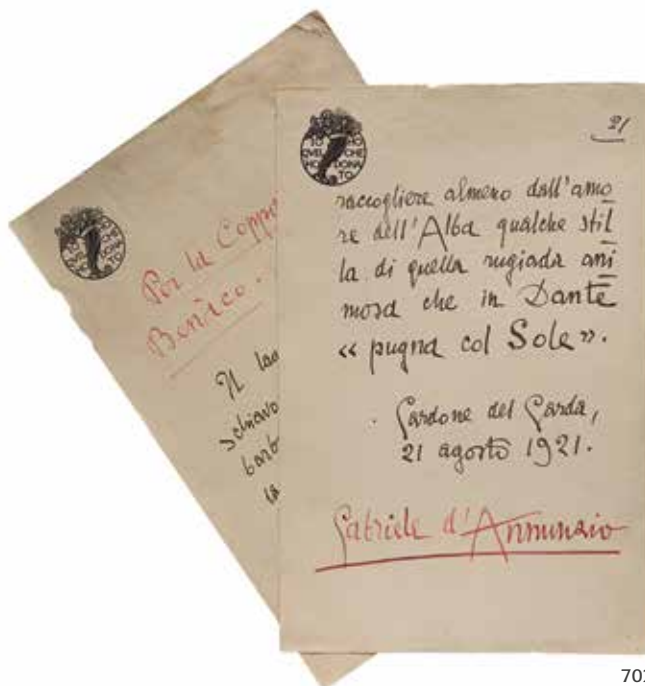 Per la Coppa
Benàco.
Il
schiavo
IO HO
QUEL CHE
HO DONA
TO
21
raccogliere almeno dall'amo
re dell'Alba qualche stil
la di quella rugiada ani
mosa che in Dante
« pugna col Sole ».
Gardone del Garda,
21 agosto 1921.
Gabriele d'Annunzio
702